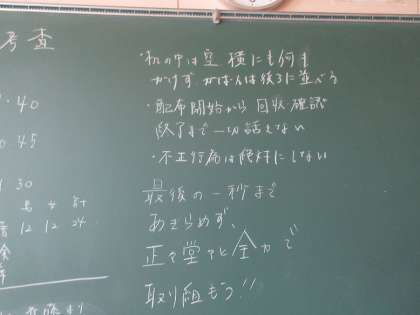 考査
・40
45
30
・机の中は空 横にも何も
かけず かばんは後ろに並べる
・配布開始から回収・確認
終了まで一切話さない
・不正行為は絶対にしない
最後の一秒まで
あきらめず、
正々堂々と全力で
取り組もう!!
12 12 24